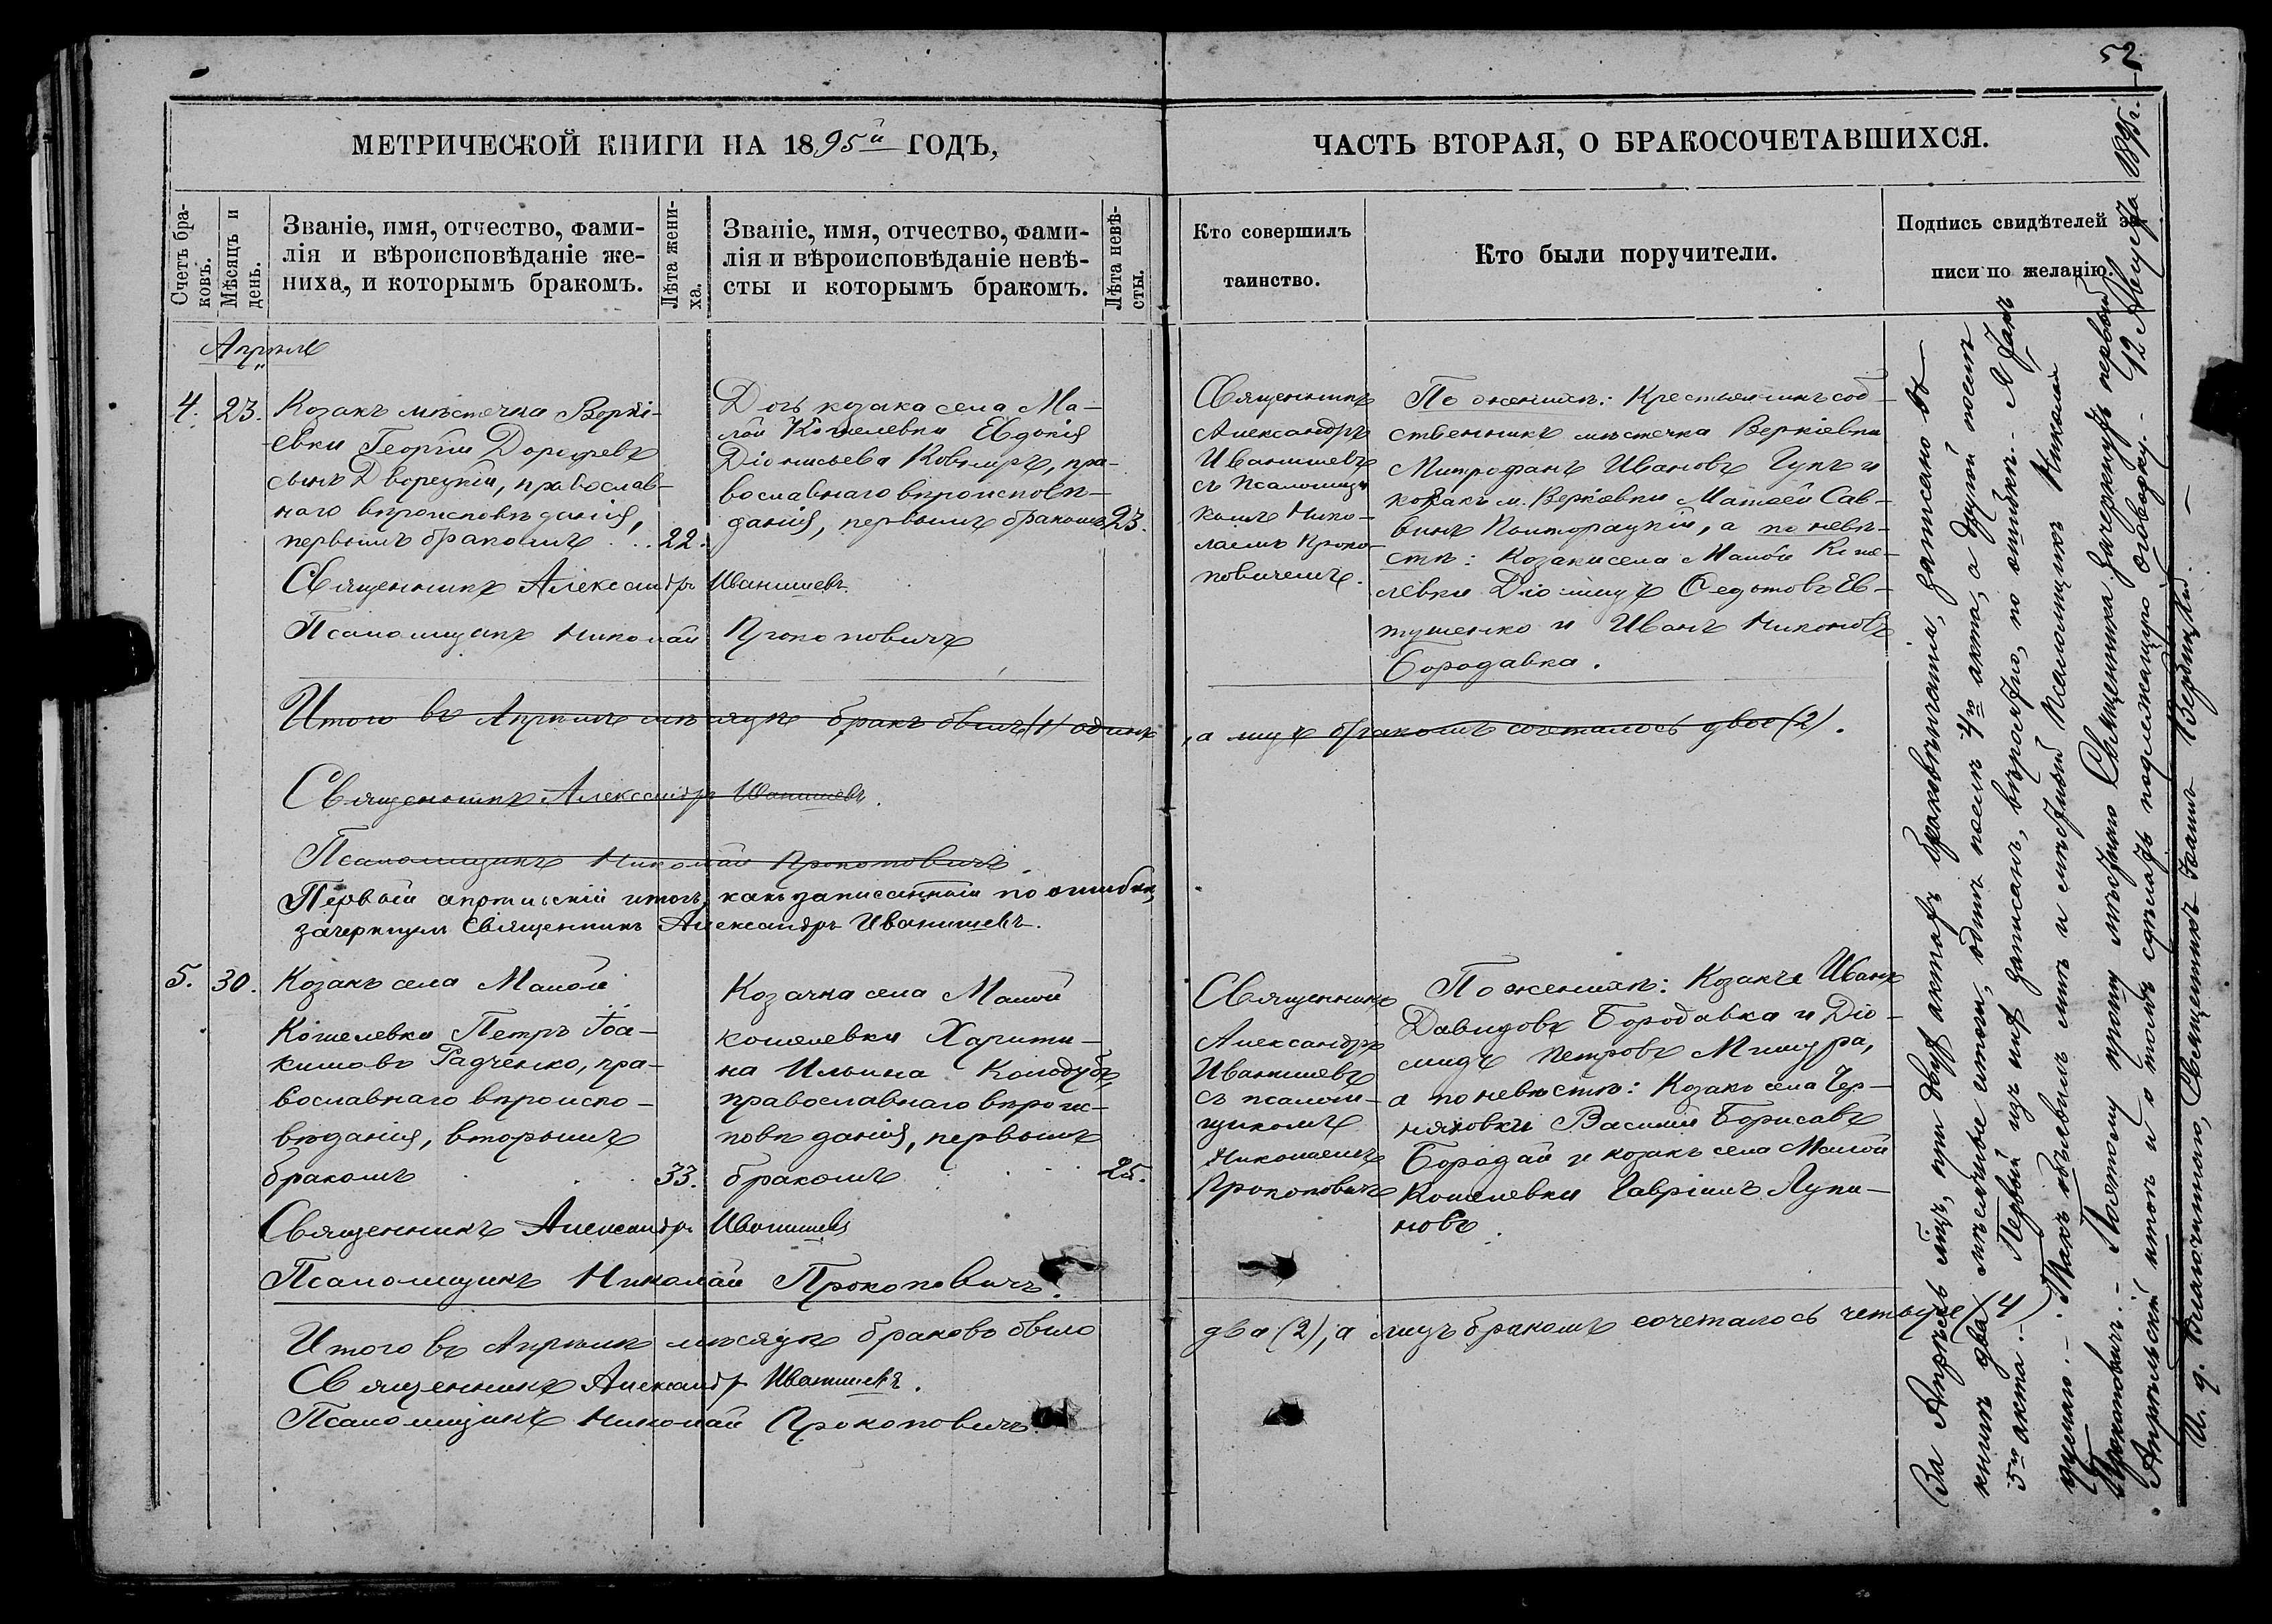 52
МЕТРИЧЕСКОЙ КНИГИ НА 1895й ГОДЪ,
ЧАСТЬ ВТОРАЯ, О БРАКОСОЧЕТАВШИХСЯ.
Счетъ бра-
ковъ.
Мѣсяцъ и
день.
Званіе, имя, отчество, фами-
лія и вѣроисповѣданіе же-
ниха, и которымъ бракомъ.
Лѣта жени-
ха.
Званіе, имя, отчество, фами-
лія и вѣроисповѣданіе невѣ-
сты и которымъ бракомъ.
Лѣта невѣ-
сты.
Кто совершилъ
таинство.
Кто были поручители.
Подпись свидѣтелей за-
писи по желанію.
Апрѣль
4. 23.
Козакъ мѣстечка Веркі-
евки Георгій
сынъ Дворецкій, православ-
наго вѣроисповѣданія,
первымъ бракомъ . . . 22.
Дочь козака села Ма-
лой Кошелевки Евдокія
Діонисьева пра-
вославнаго вѣроисповѣ-
данія, первымъ бракомъ 23.
Священникъ
Александръ
Иванишевъ
съ псаломщи
комъ Нико-
лаемъ Проко-
повичемъ.
По женихѣ: Крестьянинъ соб-
ственникъ мѣстечка Веркіевки
Митрофанъ Ивановъ Гупъ и
козакъ м. Веркіевки Матвей Сав-
винъ Полторацкій, а по невѣ-
стѣ: Козаки села Малой Коше-
левки Діомидъ Федотовъ Ев-
тушенко и Иванъ Никоновъ
Бородавка.
Священникъ Александръ Иванишевъ
Псаломщикъ Николай Прокоповичъ
Итого въ Апрѣлѣ мѣсяцѣ бракъ былъ (1) одинъ, а лицъ бракомъ сочеталось двое (2).
Священникъ Александръ Иванишевъ.
Псаломщикъ Николай Прокоповичъ
Первый апрѣльскій итогъ, какъ записанный по ошибкѣ,
зачеркнулъ Священникъ Александръ Иванишевъ.
5. 30.
Козакъ села Малой
Кошелевки Петръ Іоа-
кимовъ Радченко, пра-
вославнаго вѣроиспо-
вѣданія, вторымъ
бракомъ . . . 33.
Козачка села Малой
Кошелевки Харити-
на Ильина Колодубъ,
православнаго вѣроис-
повѣданія, первымъ
бракомъ . . . 25.
Священникъ
Александръ
Иванишевъ
съ псалом-
щикомъ
Николаемъ
Прокоповичемъ
По женихѣ: Козаки Иванъ
Давидовъ Бородавка и Діо-
мидъ Петровъ Мишура,
а по невѣстѣ: Козакъ села Чер-
няховки Василій Борисовъ
Бородай и козакъ села Малой
Кошелевки Гавріилъ Лупи-
новъ.
Священникъ Александръ Иванишевъ
Псаломщикъ Николай Прокоповичъ.
Итого въ Апрѣлѣ мѣсяцѣ браковъ было два (2), а лицъ бракомъ сочеталось четыре (4)
Священникъ Александръ Иванишевъ.
Псаломщикъ Николай Прокоповичъ
За Апрѣль мѣс, при двухъ актахъ бракосочетанія, записано въ
книгѣ два мѣсячные итоги, одинъ послѣ 4го акта, а другой послѣ
5го акта. - Первый изъ нихъ записанъ, вѣроятно, по ошибкѣ. - Я такъ
думаю. - Такъ объяснилъ мнѣ и мѣстный Псаломщикъ Николай
Прокоповичъ. - Поэтому прошу мѣстнаго Священника зачеркнуть первый
Апрѣльскій итогъ и о томъ сдѣлать подлежащую оговорку. - 12 Августа 1895 г. -
И. д. Благочиннаго, Священникъ Іоаннъ Вербицкій. -